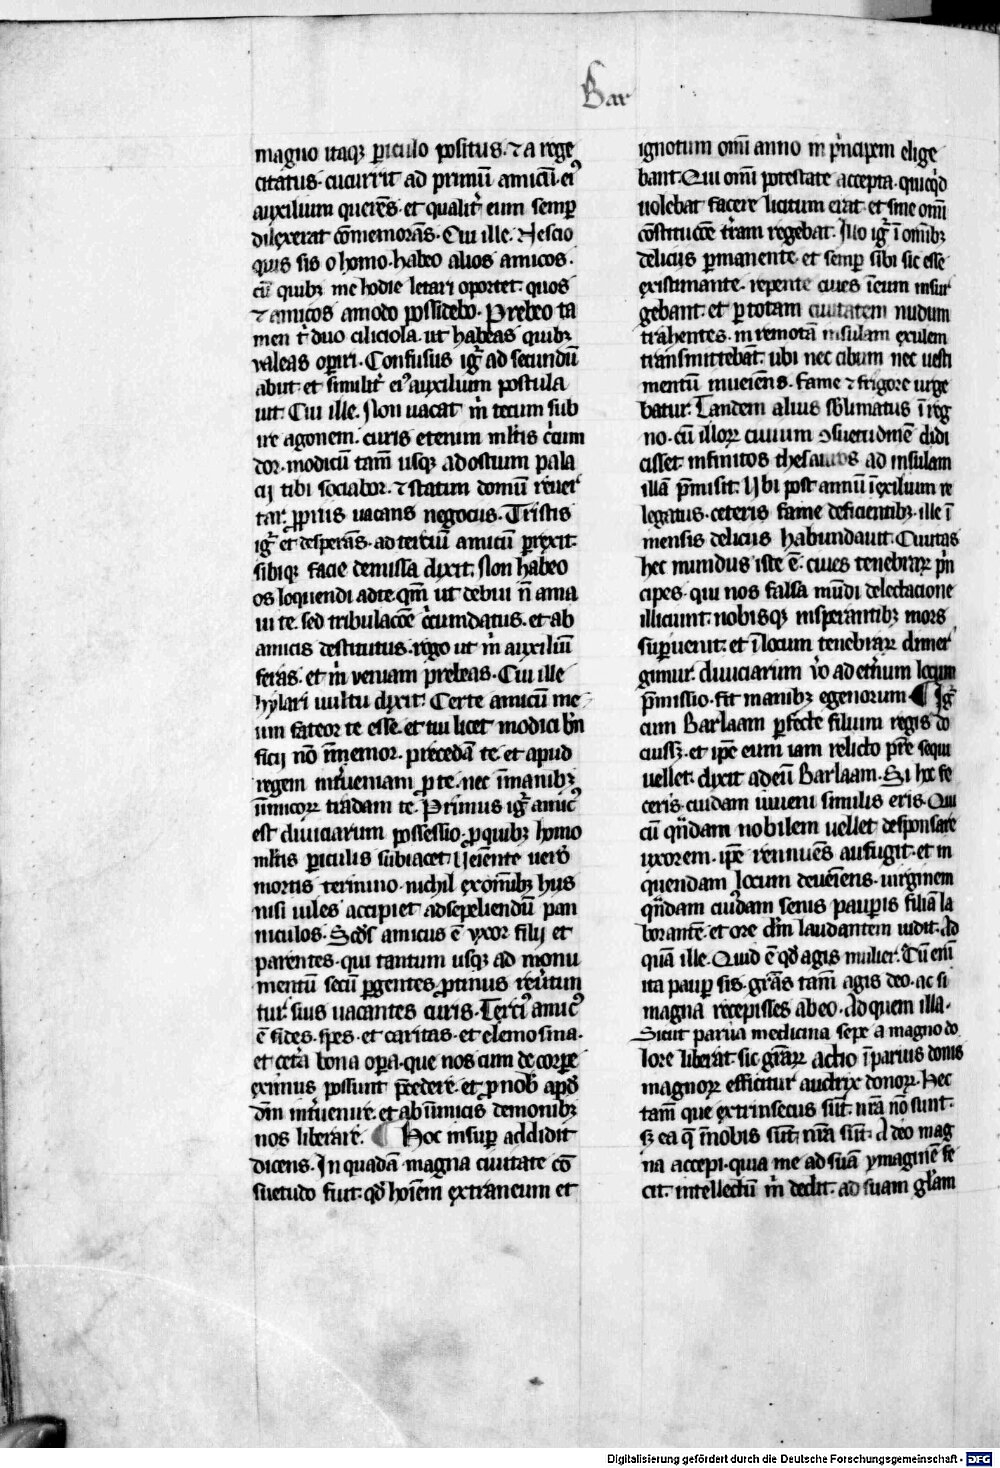 Bar
magno itaqꝫ ꝑiculo positus. ⁊ a rege
citatus. cucurrit ad primū amicū. eiꝰ
auxilium querēs. et qualit̉ eum semꝑ
dilexerat cōmemorās. Cui ille. Nescio
quis sis o homo. habeo alios amicos.
cū quibꝫ me hodie letari oportet. quos
⁊ amicos amodo possidebo. Prebeo ta
men t̉ duo ciliciola. ut habeas quibꝫ
valeas oꝑiri. Confusus igr̄ ad secundū
abiit. et similit̉ eiꝰ auxilium postula
uit. Cui ille. Non uacat m̉ tecum sub
ire agonem. curis etenim ml̉tis c̉cum
dor. modicū tam̄ usqꝫ ad ostium pala
cij tibi sociabor. ⁊ statim domū reuer
tar ꝓpriis uacans negociis. Tristis
igr̄ et desperās. ad terciū amicū ꝑrexit.
sibiqꝫ facie demissa dixit. Non habeo
os loquendi ad te. qm̄ ut debui n̄ ama
ui te. sed tribulacōe c̉cumdatus. et ab
amicis destitutus. rogo ut m̉ auxiliū
feras. et m̉ veniam prebeas. Cui ille
hylari uultu dixit. Certe amicū me
um fateor te esse. et tui licet modici bn̄
ficij nō īmemor. precedā te. et apud
regem int̉ueniam ꝓ te. nec ī manibꝫ
inimicoꝝ tradam te. Primus igr̄ amicꝰ
est diuiciarum possessio. ꝓ quibꝫ homo
ml̉tis ꝑiculis subiacet. Veniente uero
mortis termino. nichil ex omībꝫ hys
nisi uiles accipiet ad sepeliendū pan
niculos. Scd̄s amicus ē vxor filij et
parentes. qui tantum usqꝫ ad monu
mentū secū ꝑgentes ꝓtinus reủtun
tur. suis uacantes curis. Terciꝰ amicꝰ
ē fides. spes. et caritas. et elemosina.
et cet̉a bona oꝑa. que nos cum de corꝑe
eximus possunt p̄cedere. et ꝓ nob̄ apd̄
dm̄ int̉uenire. et ab inimicis demonibꝫ
nos liberare. ¶ Hoc insuꝑ addidit
dicens. In quadā magna ciuitate cō
suetudo fuit. qd̄ hoīem extraneum et
ignotum omī anno in p̉ncipem elige
bant. Qui omī potestate accepta. quicqd̄
uolebat facere licitum erat. et sine omī
cōstitucōe t̉ram regebat. Illo igr̄ ī omībꝫ
delicijs ꝑmanente. et semꝑ sibi sic esse
existimante. repente ciues ī eum insur
gebant. et ꝑ totam ciuitatem nudum
trahentes. in remotā insulam exulem
transmittebāt. ubi nec cibum nec uesti
mentū inueiens. fame ⁊ frigore urge
batur. Tandem alius sb̉limatus ī reg
no. cū illoꝝ ciuium ꝯsuetudinē didi
cisset. infinitos thesauros ad insulam
illā p̄misit. Ubi post annū ī exilium re
legatus. ceteris fame deficientibꝫ. ille ī
mensis delicijs habundauit. Ciuitas
hec mundus iste ē. ciues tenebraꝝ p̉n
cipes. qui nos falsa mūdi delectacione
illiciunt. nobisqꝫ insperantibꝫ mors
suꝑuenit. et ī locum tenebraꝝ dimer
gimur. diuiciarum v̉o ad et̉num locum
p̄missio. fit manibꝫ egenorum ¶ Igr̄
cum Barlaam ꝑfecte filium regis do
cuissꝫ. et ip̄e eum iam relicto pr̄e sequi
uellet. dixit ad eū Barlaam. Si hoc fe
ceris cuidam iuueni similis eris. Qui
cū qn̄dam nobilem uellet desponsare
uxorem. ip̄e rennuēs aufugit. et in
quendam locum deueīens. uirginem
qn̄dam cuiꝰdam senis pauꝑis filiā la
borantē. et ore dm̄ laudantem uidit. Ad
quā ille. Quid ē qd̄ agis mulier. Cū eni
ita pauꝑ sis. grās tam̄ agis deo. ac si
magna recepisses ab eo. Ad quem illa.
Sicut parua medicina sepe a magno do
lore liberat. sic grāꝝ actio ī paruis donis
magnoꝝ efficitur auctrix donoꝝ. Hec
tam̄ que extrinsecus sūt. nr̄a nō sunt.
sꝫ ea q̄ ī nobis sūt. nr̄a sūt. A deo mag
na accepi. quia me ad suā ymaginē fe
cit. intellectū m̉ dedit. ad suam gl̉iam
Digitalisierung gefördert durch die Deutsche Forschungsgemeinschaft - DFG